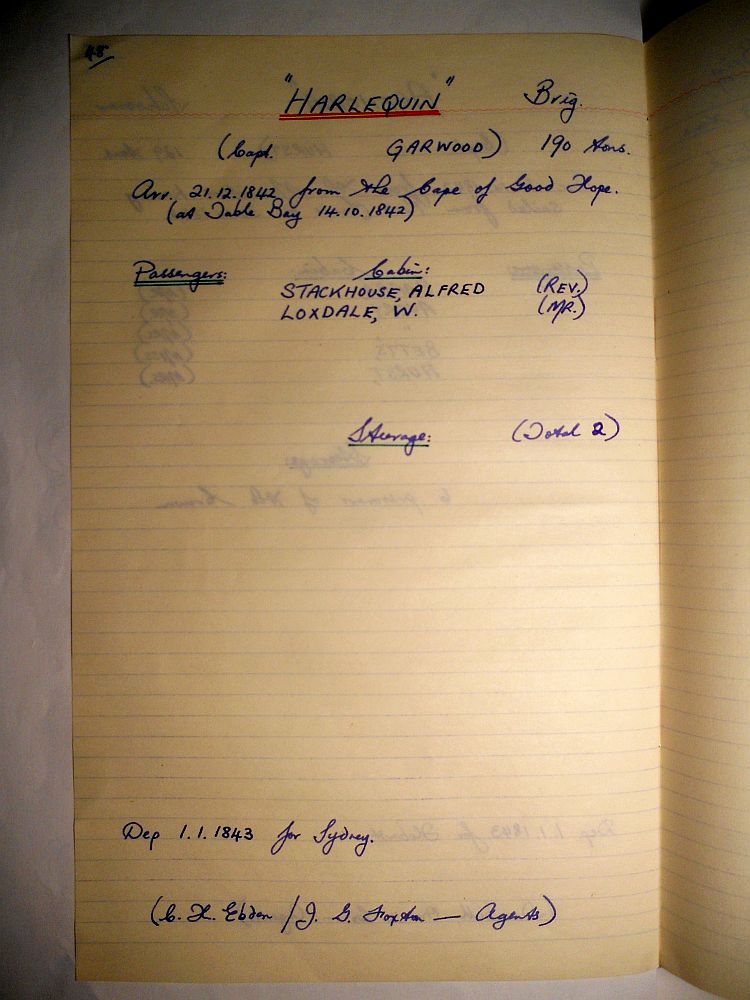 48
"HARLEQUIN" Brig.
(Capt. GARWOOD) 190 tons.
Arr. 21.12.1842 from the Cape of Good Hope.
(at Table Bay 14.10.1842)
Passengers: Cabin:
STACKHOUSE, ALFRED (REV.)
LOXDALE, W. (MR.)
Steerage: (Total 2)
Dep 1.1.1843 for Sydney.
(C. H. Ebden / J. G. Foxton — Agents)